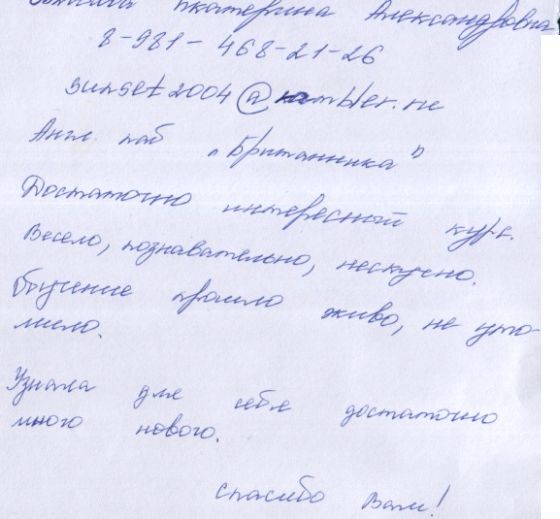 Екатерина Александровна
8-981-468-21-26
sunset2004@rambler.ru
Англ. паб „Британника"
Достаточно интересный курс.
Весело, познавательно, нескучно.
Обучение прошло живо, не уто-
мило.
Узнала для себя достаточно
много нового.
Спасибо Вам!